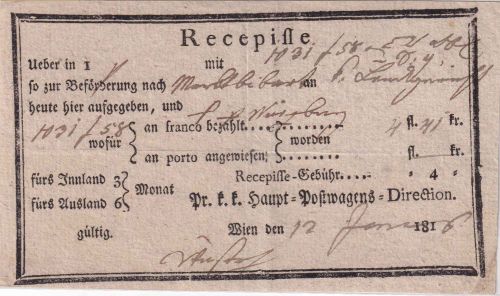 Recepisse
Ueber in 1 mit 1031 f 58
so zur Beförderung nach Marktbibart an
heute hier aufgegeben, und
1031 f 58 an franco bezahlt. . . . . . . . . . 4 fl. 41 kr.
wofür worden
an porto angewiesen. . . . . . . . . . fl. kr.
fürs Innland 3 Recepisse-Gebühr. . . . „ 4 „
Monat
fürs Ausland 6 Pr. k. k. Haupt-Postwagens-Direction.
gültig. Wien den 12 1816